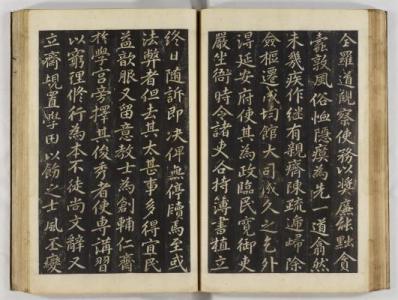 全羅道觀察使務以奬廉能黜貪
毒敦風俗恤隱瘼為先一道翕然
未幾疾作継有親齋陳疏遞歸除
僉樞遷成均館大司成久之乞外
淂延安府使其為政臨民寬御吏
嚴坐衙時令諸吏各持簿書植立
終日随訴即决俾無停牘馬至或
法弊者但去其太甚事多得宜民
益歆服又留意教士為創輔仁齋
扵學宮旁擇其俊秀者使專講習
以窮理修行為本不徒尚文辭又
立齋規置學田以餙之士風丕變